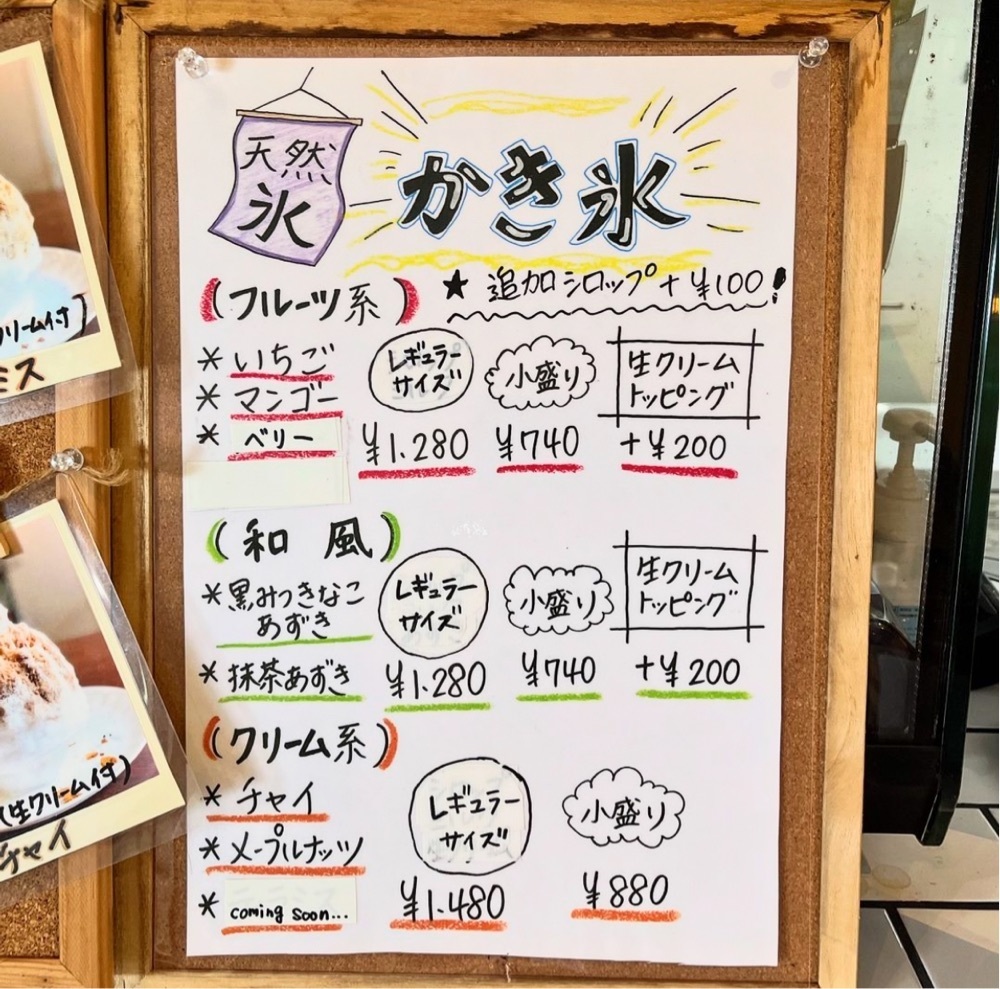 天然
氷
かき氷
(フルーツ系)
★ 追加シロップ + ¥100!
* いちご
* マンゴー
* ベリー
レギュラー
サイズ
小盛り
生クリーム
トッピング
¥1.280
¥740
+¥200
(和風)
* 黒みつきなこ
あずき
* 抹茶あずき
レギュラー
サイズ
小盛り
生クリーム
トッピング
¥1.280
¥740
+¥200
(クリーム系)
* チャイ
* メープルナッツ
* coming soon...
レギュラー
サイズ
小盛り
¥1.480
¥880
リーム付)
ミス
(生クリーム付)
チャイ